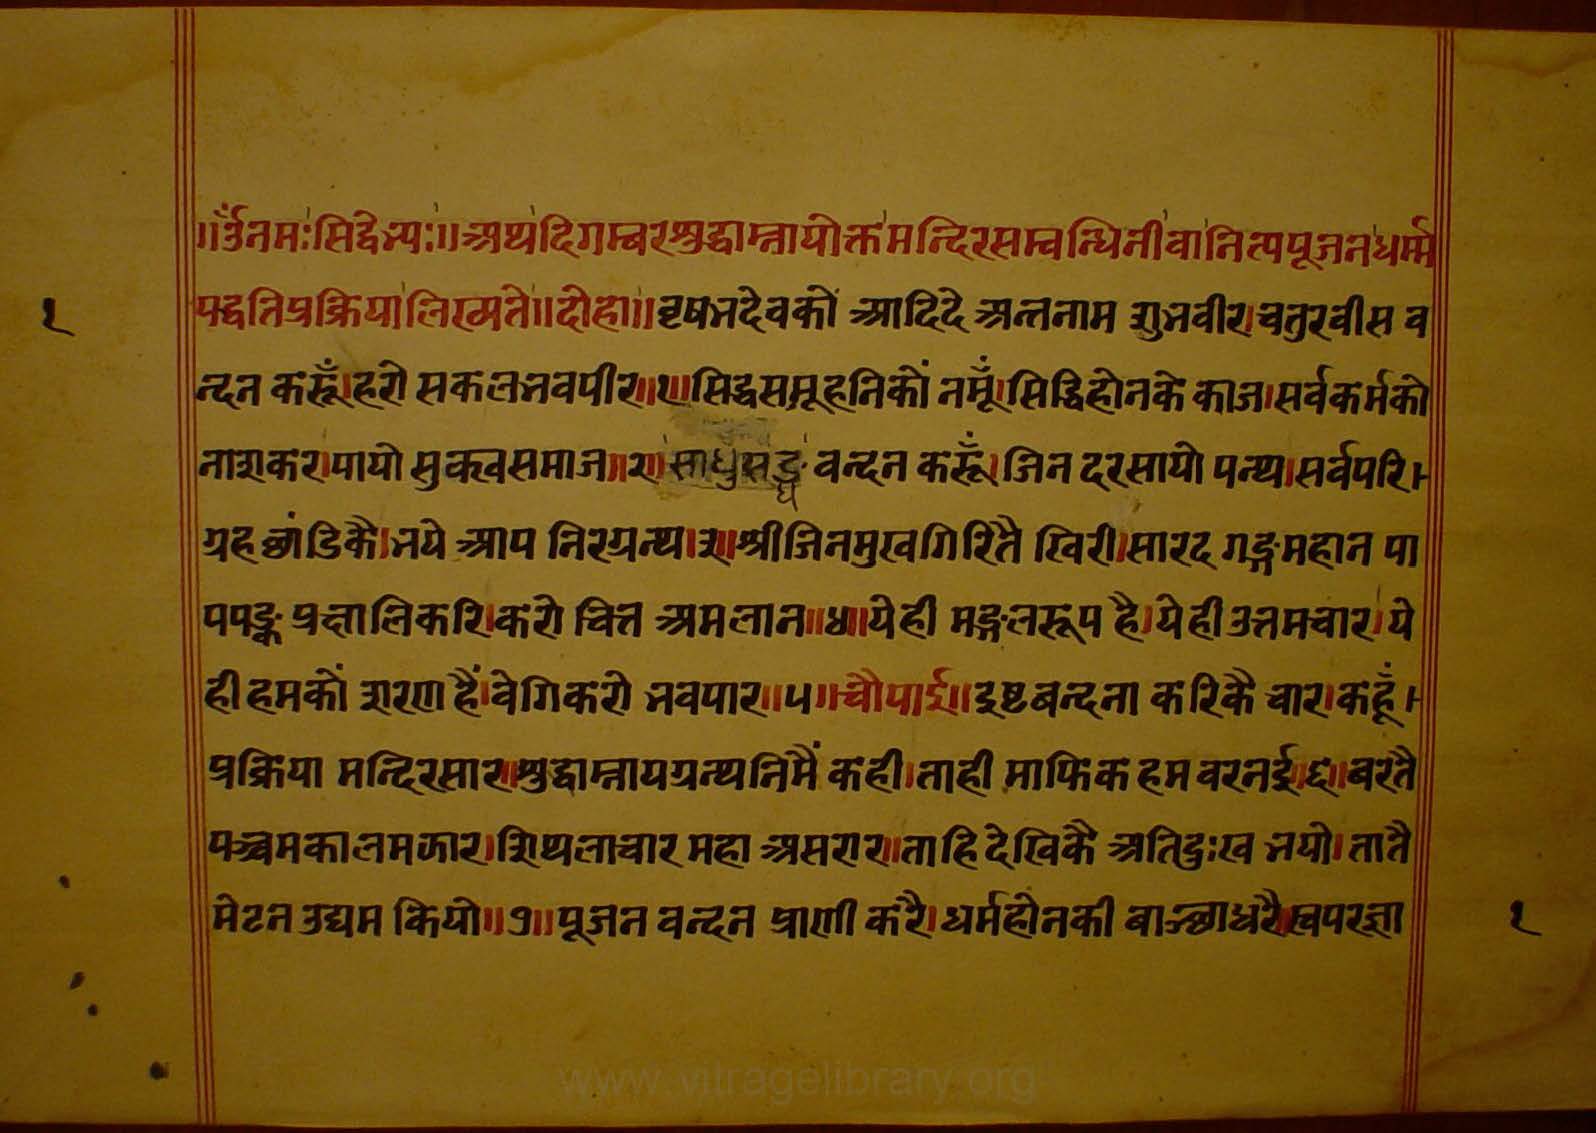 ॥ॐनमःसिद्धेभ्यः॥अथदिगम्बरशुद्धाम्नायोक्तमन्दिरसम्बन्धिनीवानित्यपूजनधर्म्म
पद्धतिप्रक्रियालिख्यते॥दोहा॥वृषभदेवकों आदिदे अन्तनाम शुभवीर।चतुरवीस व
न्दन करूँ।हरो सकलभवपीर॥१॥सिद्धसमूहनिकों नमूँ।सिद्धिहोनके काज।सर्वकर्मको
नाशकर।पायो सुक्खसमाज॥२॥साधुसङ्घ वन्दन करूँ।जिन दरसायो पन्थ।सर्वपरि-
ग्रह छांडिकै।भये आप निरग्रन्थ॥३॥श्रीजिनमुखगिरितै खिरी।सारद गङ्गमहान पा
पपङ्क प्रक्षालिकरि।करो चित्त अमलान॥४॥येही मङ्गलरूप है।येही उत्तमचार।ये
ही हमकों शरण हैं।वेगिकरो भवपार॥५॥चौपाई॥इष्टबन्दना करिकै चार।कहूँ-
प्रक्रिया मन्दिरसार॥शुद्धाम्नायग्रन्थनिमैं कही।ताही माफिक हम वरनई॥६॥बरतै
पञ्चमकालमझार।शिथलाचार महा असरार॥ताहि देखिकै अतिदुःख भयो।तातै
मेटन उद्यम कियो॥७॥पूजन वन्दन प्राणी करै।धर्महोनकी बाञ्छाधरै॥स्वपरज्ञा
१
१
www.vitragelibrary.org